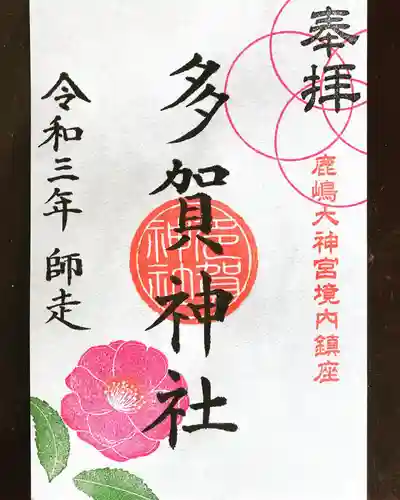 奉拝
鹿嶋大神宮境内鎮座
多賀神社
多賀神社
令和三年 師走